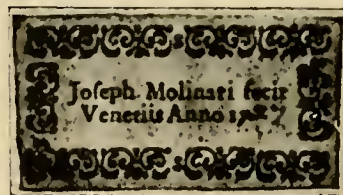 Joſeph Molinari fecit
Venetiis Anno